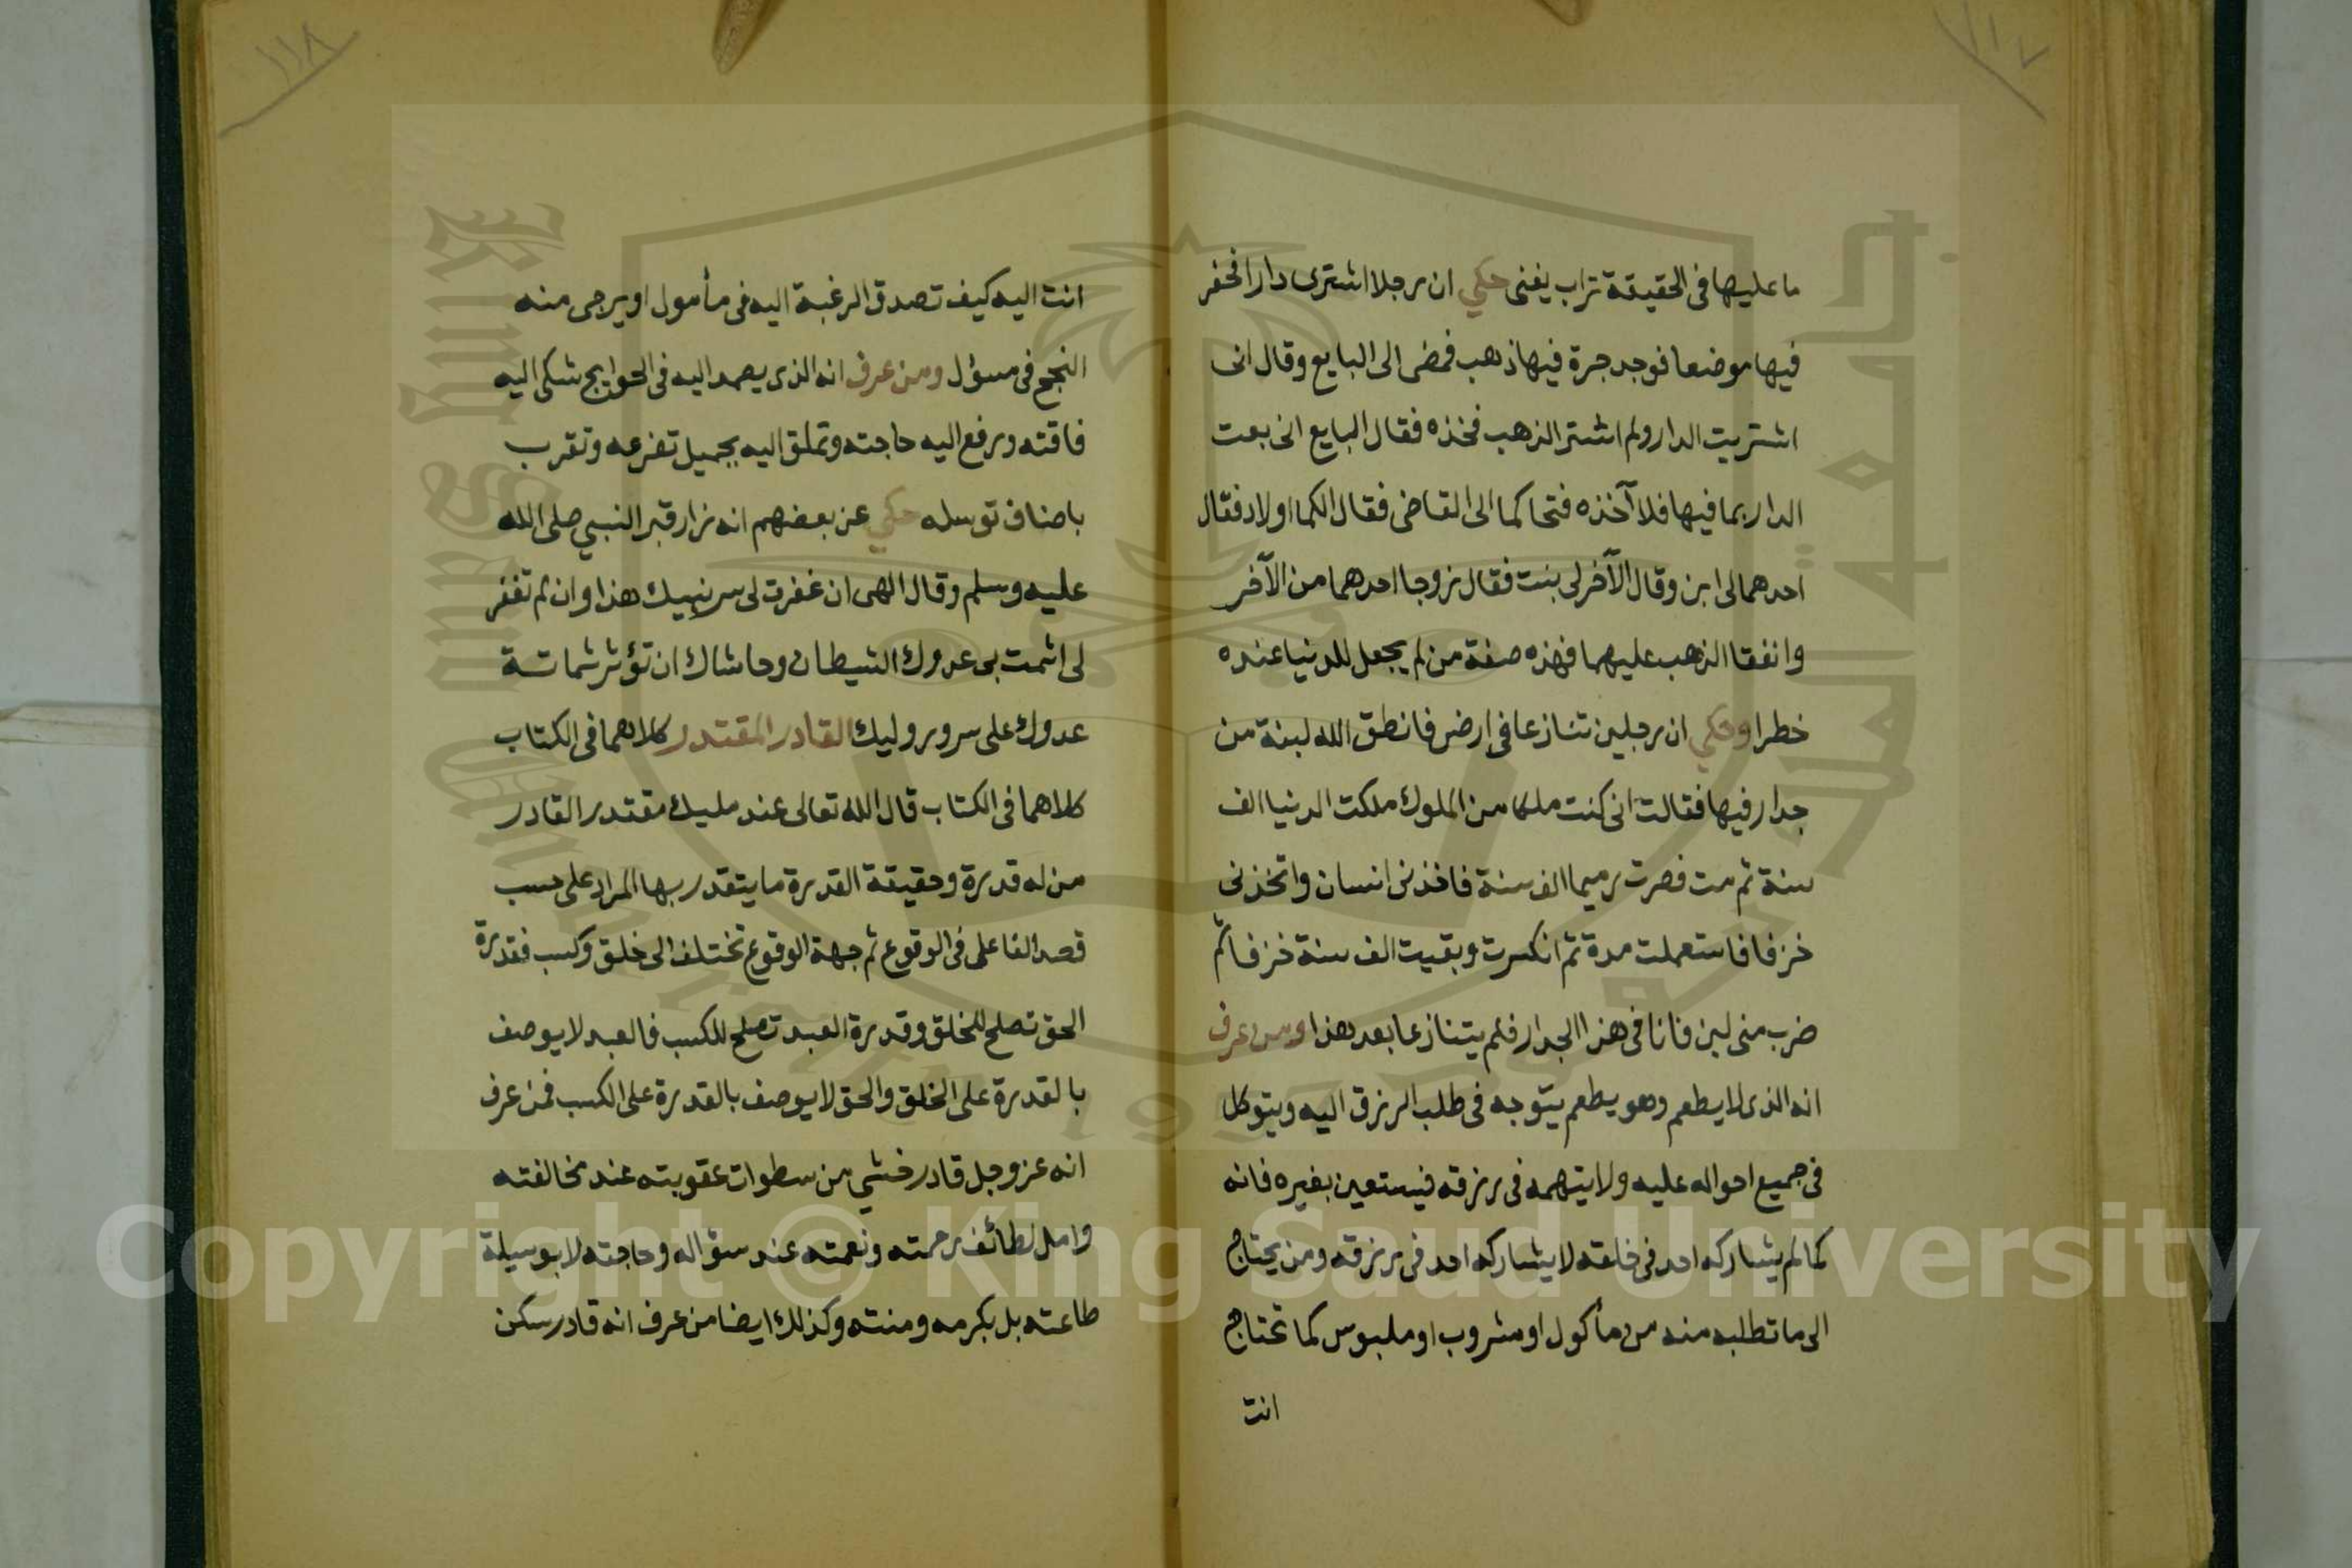 ١١٧
ما عليها في الحقيقة تراب يفنى حكي ان رجلا اشترى دارا فحفر
فيها موضعا فوجد جرة فيها ذهب فمضى الى البايع وقال انى
اشتريت الدار ولم اشتر الذهب فخذه فقال البايع انى بعت
الدار بما فيها فلا آخذه فتحاكما الى القاضى فقال الكما اولاد فقال
احدهما لى ابن وقال الآخر لى بنت فقال زوجا احدهما من الآخر
وانفقا الذهب عليهما فهذه صفة من لم يجعل للدنيا عنده
خطرا وحكي ان رجلين تنازعا فى ارض فانطق الله لبنة من
جدار فيها فقالت انى كنت ملكا من الملوك ملكت الدنيا الف
سنة ثم مت فصرت رميما الف سنة فاخذنى انسان واتخذنى
خزفا فاستعملت مدة ثم انكسرت وبقيت الف سنة خزفا ثم
ضرب منى لبن فانا فى هذا الجدار فلم يتنازعا بعد هذا ومن عرف
انه الذى لا يطعم وهو يطعم يتوجه فى طلب الرزق اليه ويتوكل
فى جميع احواله عليه ولا يتهمه فى رزقه فيستعين بغيره فانه
كما لم يشاركه احد فى خلقه لا يشاركه احد فى رزقه ومن يحتاج
الى ما تطلبه منه من مأكول او مشروب او ملبوس كما تحتاج
انت
١١٨
انت اليه كيف تصدق الرغبة اليه فى مأمول او يرجى منه
النجح فى مسؤل ومن عرف انه الذى يصمد اليه فى الحوايج شكى اليه
فاقته ورفع اليه حاجته وتملق اليه بجميل تضرعه وتقرب
باصناف توسله حكي عن بعضهم انه زار قبر النبي صلى الله
عليه وسلم وقال الهى ان غفرت لى سر نبيك هذا وان لم تغفر
لى اشمت بى عدوك الشيطان وحاشاك ان تؤثر شماتة
عدوك على سرور وليك القادر المقتدر كلاهما فى الكتاب
كلاهما فى الكتاب قال الله تعالى عند مليك مقتدر القادر
من له قدرة وحقيقة القدرة ما يتقدر بها المراد على حسب
قصد الفاعل فى الوقوع ثم جهة الوقوع تختلف الى خلق وكسب فقدرة
الحق تصلح للخلق وقدرة العبد تصلح للكسب فالعبد لا يوصف
بالقدرة على الخلق والحق لا يوصف بالقدرة على الكسب فمن عرف
انه عز وجل قادر خشي من سطوات عقوبته عند مخالفته
وامل لطائف رحمته ونعمته عند سؤاله وحاجته لا بوسيلة
طاعته بل بكرمه ومنته وكذلك ايضا من عرف انه قادر سكن
Copyright © King Saud University